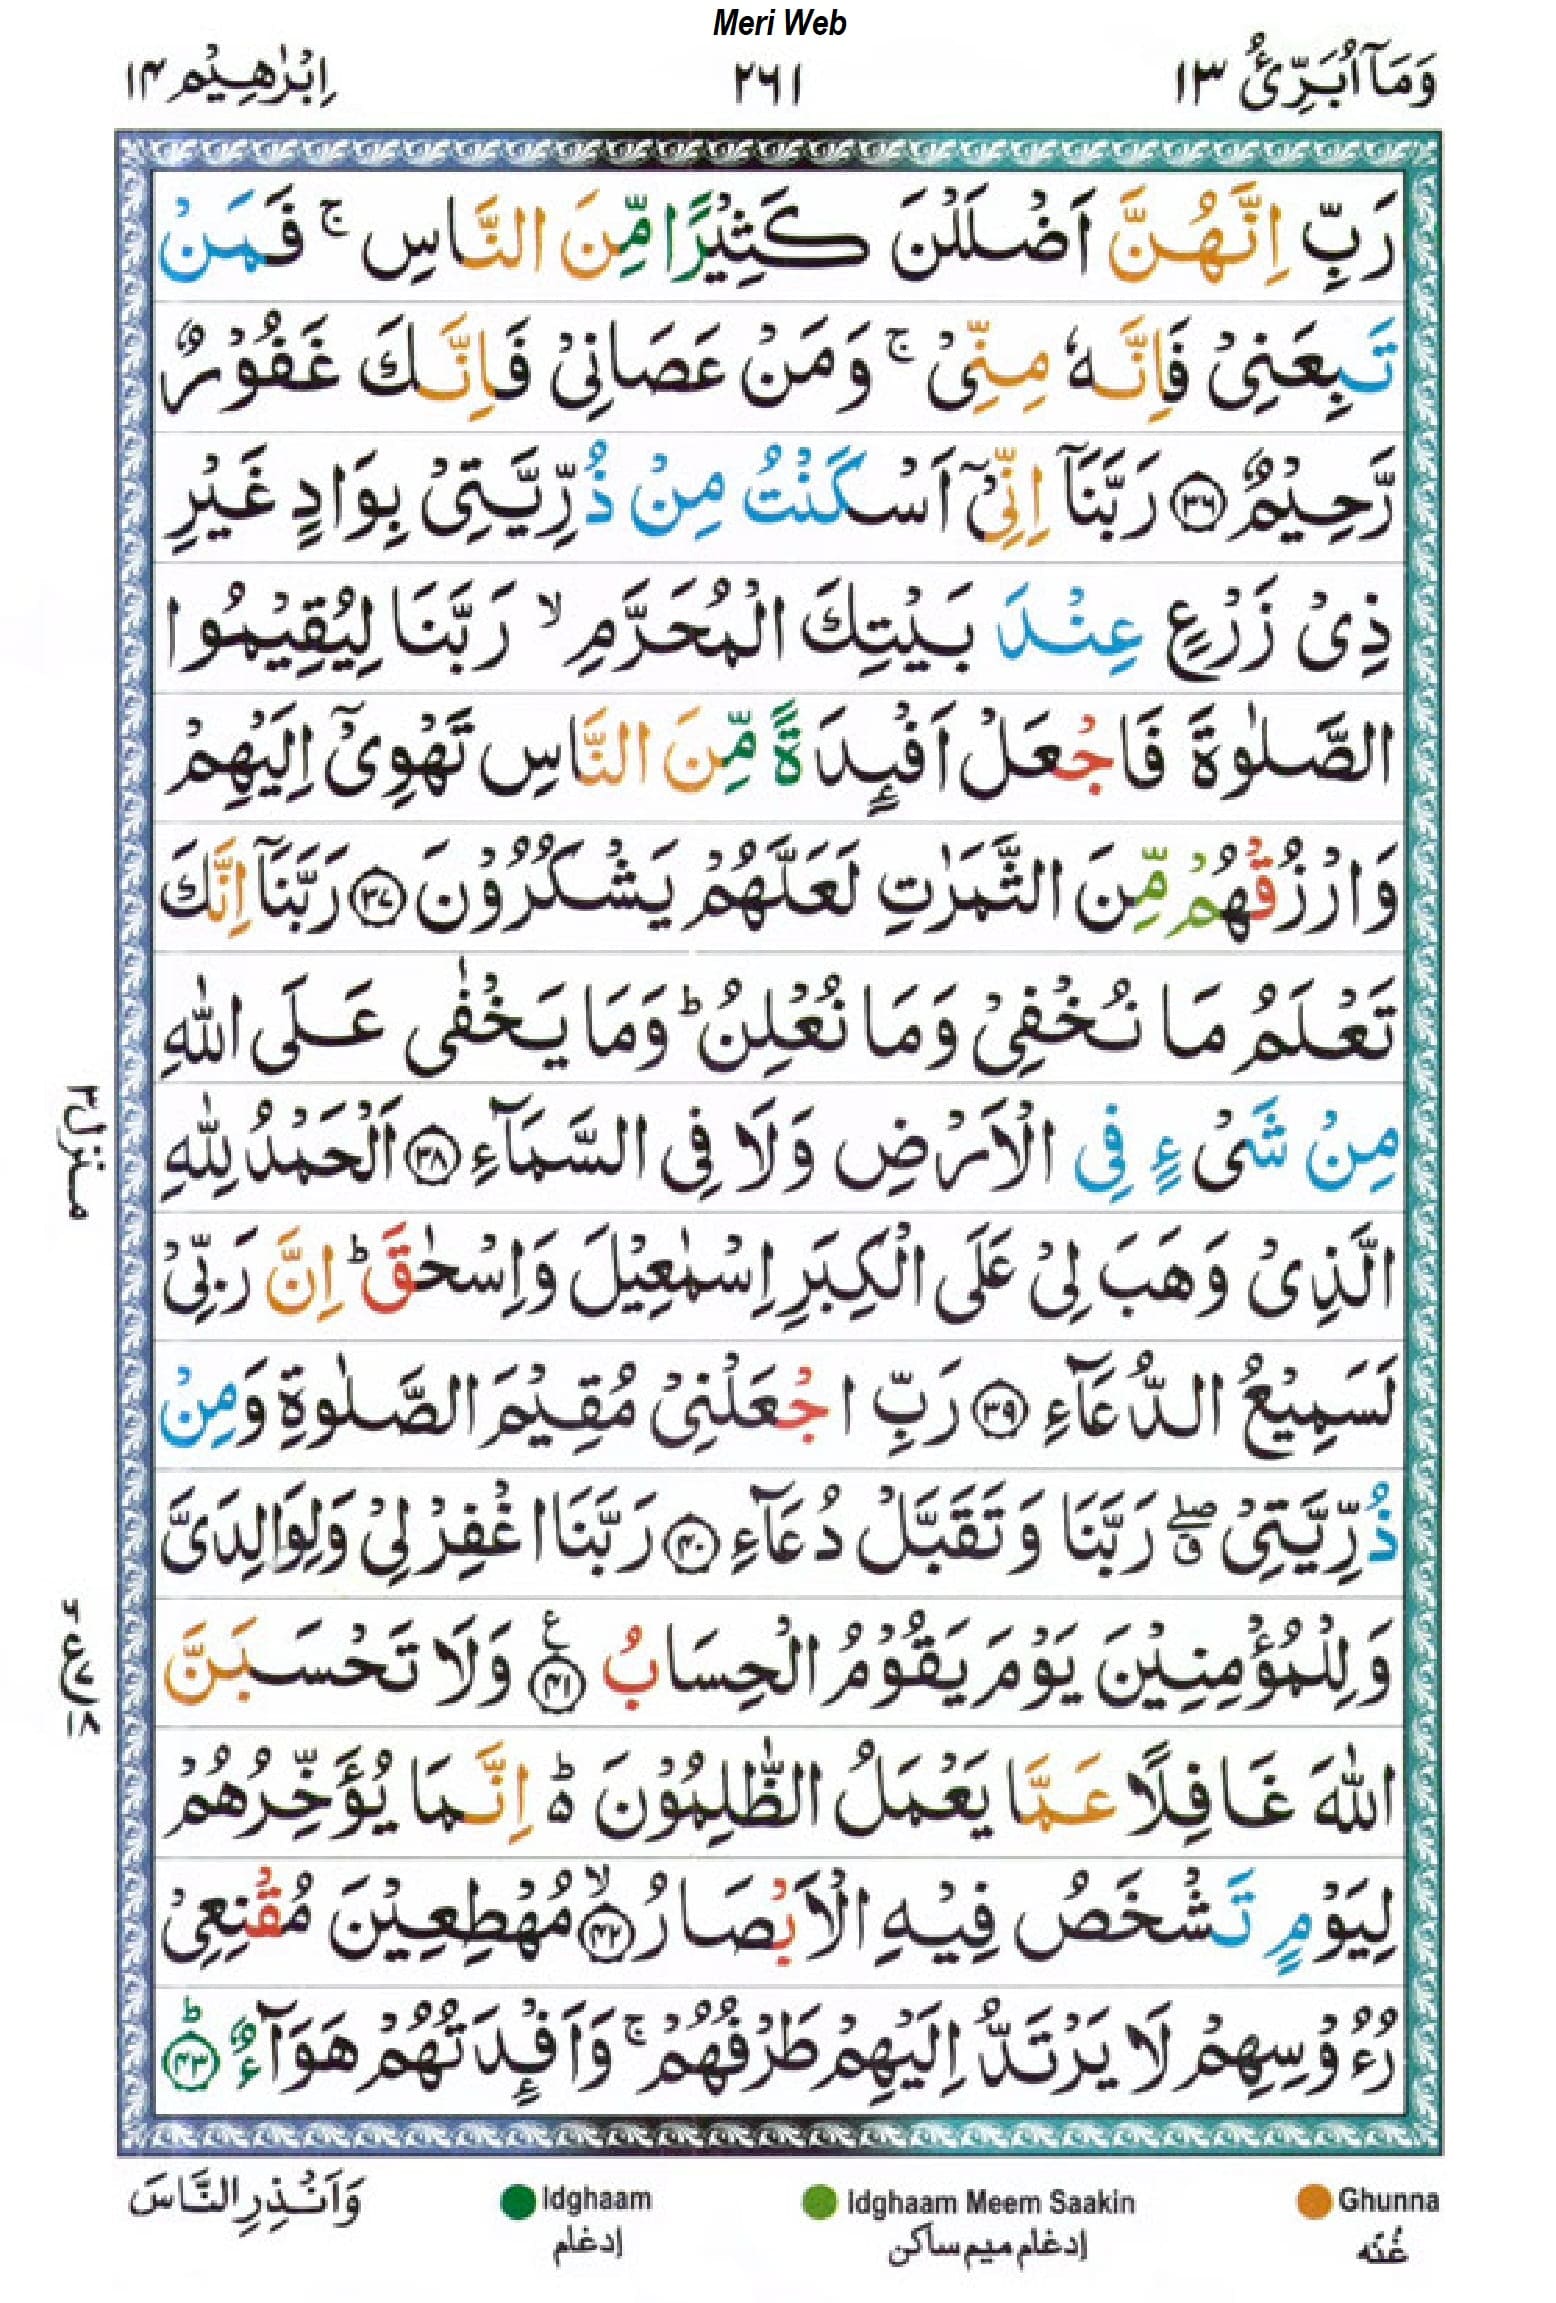 Meri Web
وَمَاۤ اُبَرِّئُ ۱۳
۲۶۱
اِبْرٰهِيْم ۱۴
رَبِّ اِنَّهُنَّ اَضْلَلْنَ كَثِيْرًا مِّنَ النَّاسِ ۚ فَمَنْ
تَبِعَنِيْ فَاِنَّهٗ مِنِّيْ ۚ وَمَنْ عَصَانِيْ فَاِنَّكَ غَفُوْرٌ
رَّحِيْمٌ ﴿۳۶﴾ رَبَّنَاۤ اِنِّيْۤ اَسْكَنْتُ مِنْ ذُرِّيَّتِيْ بِوَادٍ غَيْرِ
ذِيْ زَرْعٍ عِنْدَ بَيْتِكَ الْمُحَرَّمِ ۙ رَبَّنَا لِيُقِيْمُوا
الصَّلٰوةَ فَاجْعَلْ اَفْـِٕدَةً مِّنَ النَّاسِ تَهْوِيْۤ اِلَيْهِمْ
وَارْزُقْهُمْ مِّنَ الثَّمَرٰتِ لَعَلَّهُمْ يَشْكُرُوْنَ ﴿۳۷﴾ رَبَّنَاۤ اِنَّكَ
تَعْلَمُ مَا نُخْفِيْ وَمَا نُعْلِنُ ؕ وَمَا يَخْفٰى عَلَى اللّٰهِ
مِنْ شَيْءٍ فِي الْاَرْضِ وَلَا فِي السَّمَآءِ ﴿۳۸﴾ اَلْحَمْدُ لِلّٰهِ
الَّذِيْ وَهَبَ لِيْ عَلَى الْكِبَرِ اِسْمٰعِيْلَ وَاِسْحٰقَ ؕ اِنَّ رَبِّيْ
لَسَمِيْعُ الدُّعَآءِ ﴿۳۹﴾ رَبِّ اجْعَلْنِيْ مُقِيْمَ الصَّلٰوةِ وَمِنْ
ذُرِّيَّتِيْ ۖۗ رَبَّنَا وَتَقَبَّلْ دُعَآءِ ﴿۴۰﴾ رَبَّنَا اغْفِرْ لِيْ وَلِوَالِدَيَّ
وَلِلْمُؤْمِنِيْنَ يَوْمَ يَقُوْمُ الْحِسَابُ ﴿۴۱﴾ ع وَلَا تَحْسَبَنَّ
اللّٰهَ غَافِلًا عَمَّا يَعْمَلُ الظّٰلِمُوْنَ ؕ۬ اِنَّمَا يُؤَخِّرُهُمْ
لِيَوْمٍ تَشْخَصُ فِيْهِ الْاَبْصَارُ ﴿۴۲﴾ ۙ مُهْطِعِيْنَ مُقْنِعِيْ
رُءُوْسِهِمْ لَا يَرْتَدُّ اِلَيْهِمْ طَرْفُهُمْ ۚ وَاَفْـِٕدَتُهُمْ هَوَآءٌ ﴿۴۳﴾ ؕ
منزل۳
وَاَنْذِرِ النَّاسَ
Idghaam
إدغام
Idghaam Meem Saakin
إدغام ميم ساكن
Ghunna
غُنّه